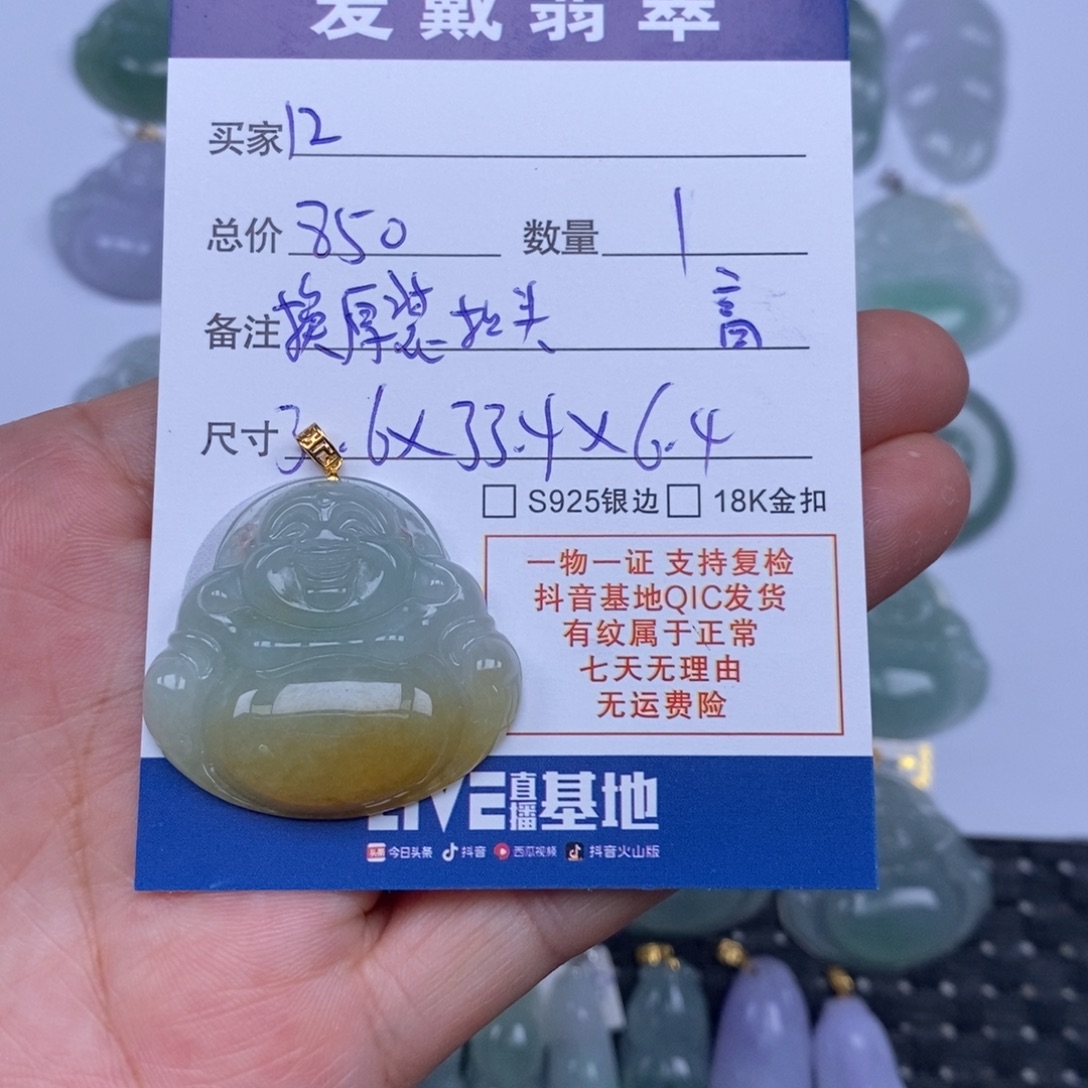 爱戴翡翠
买家 12
总价 850 数量 1
备注 换厚装 抬头 高
尺寸 6×33.4×6.4
□ S925银边 □ 18K金扣
一物一证 支持复检
抖音基地QIC发货
有纹属于正常
七天无理由
无运费险
LIVE直播基地
头条 今日头条 抖音 西瓜视频 抖音火山版